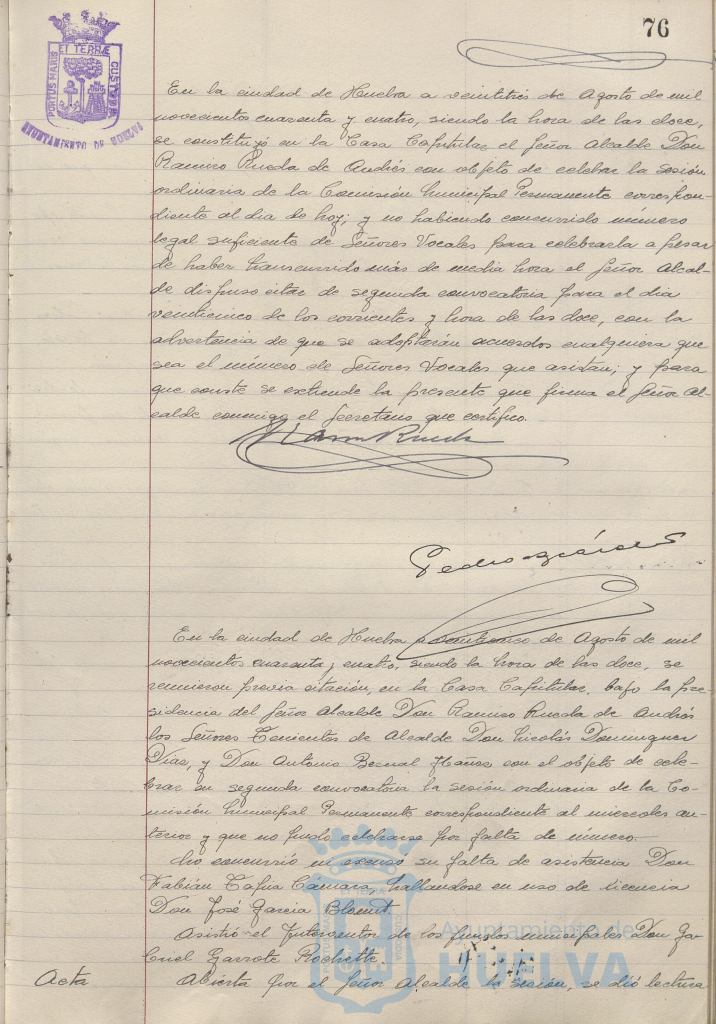 76
PORTUS MARIS ET TERRÆ CUSTODIA
AYUNTAMIENTO DE HUELVA
En la ciudad de Huelva a veintitrés de Agosto de mil
novecientos cuarenta y cuatro, siendo la hora de las doce,
se constituyó en la Casa Capitular el Señor Alcalde Don
Ramiro Rueda de Andrés con objeto de celebrar la sesión
ordinaria de la Comisión Municipal Permanente correspon-
diente al dia de hoy; y no habiendo concurrido número
legal suficiente de Señores Vocales para celebrarla a pesar
de haber transcurrido más de media hora el Señor Alcal-
de dispuso citar de segunda convocatoria para el dia
veinticinco de los corrientes y hora de las doce, con la
advertencia de que se adoptarán acuerdos cualquiera que
sea el número de Señores Vocales que asistan; y para
que conste se extiende la presente que firma el Señor Al-
calde conmigo el Secretario que certifico.
Pedro
En la ciudad de Huelva a veinticinco de Agosto de mil
novecientos cuarenta y cuatro, siendo la hora de las doce, se
reunieron previa citación, en la Casa Capitular, bajo la pre-
sidencia del Señor Alcalde Don Ramiro Rueda de Andrés
los Señores Tenientes de Alcalde Don Nicolás Dominguez
Dias, y Don Antonio Bernal Yañez con el objeto de cele-
brar en segunda convocatoria la sesión ordinaria de la Co-
misión Municipal Permanente correspondiente al miercoles an-
terior y que no pudo celebrarse por falta de número.
No concurrió ni excusó su falta de asistencia Don
Fabián Tapia Cámara, hallandose en uso de licencia
Don José Garcia
Asistió el Interventor de los fondos municipales Don Ga-
briel Garrote Rochette.
Acta Abierta por el Señor Alcalde la sesión, se dió lectura
Ayuntamiento de
HUELVA